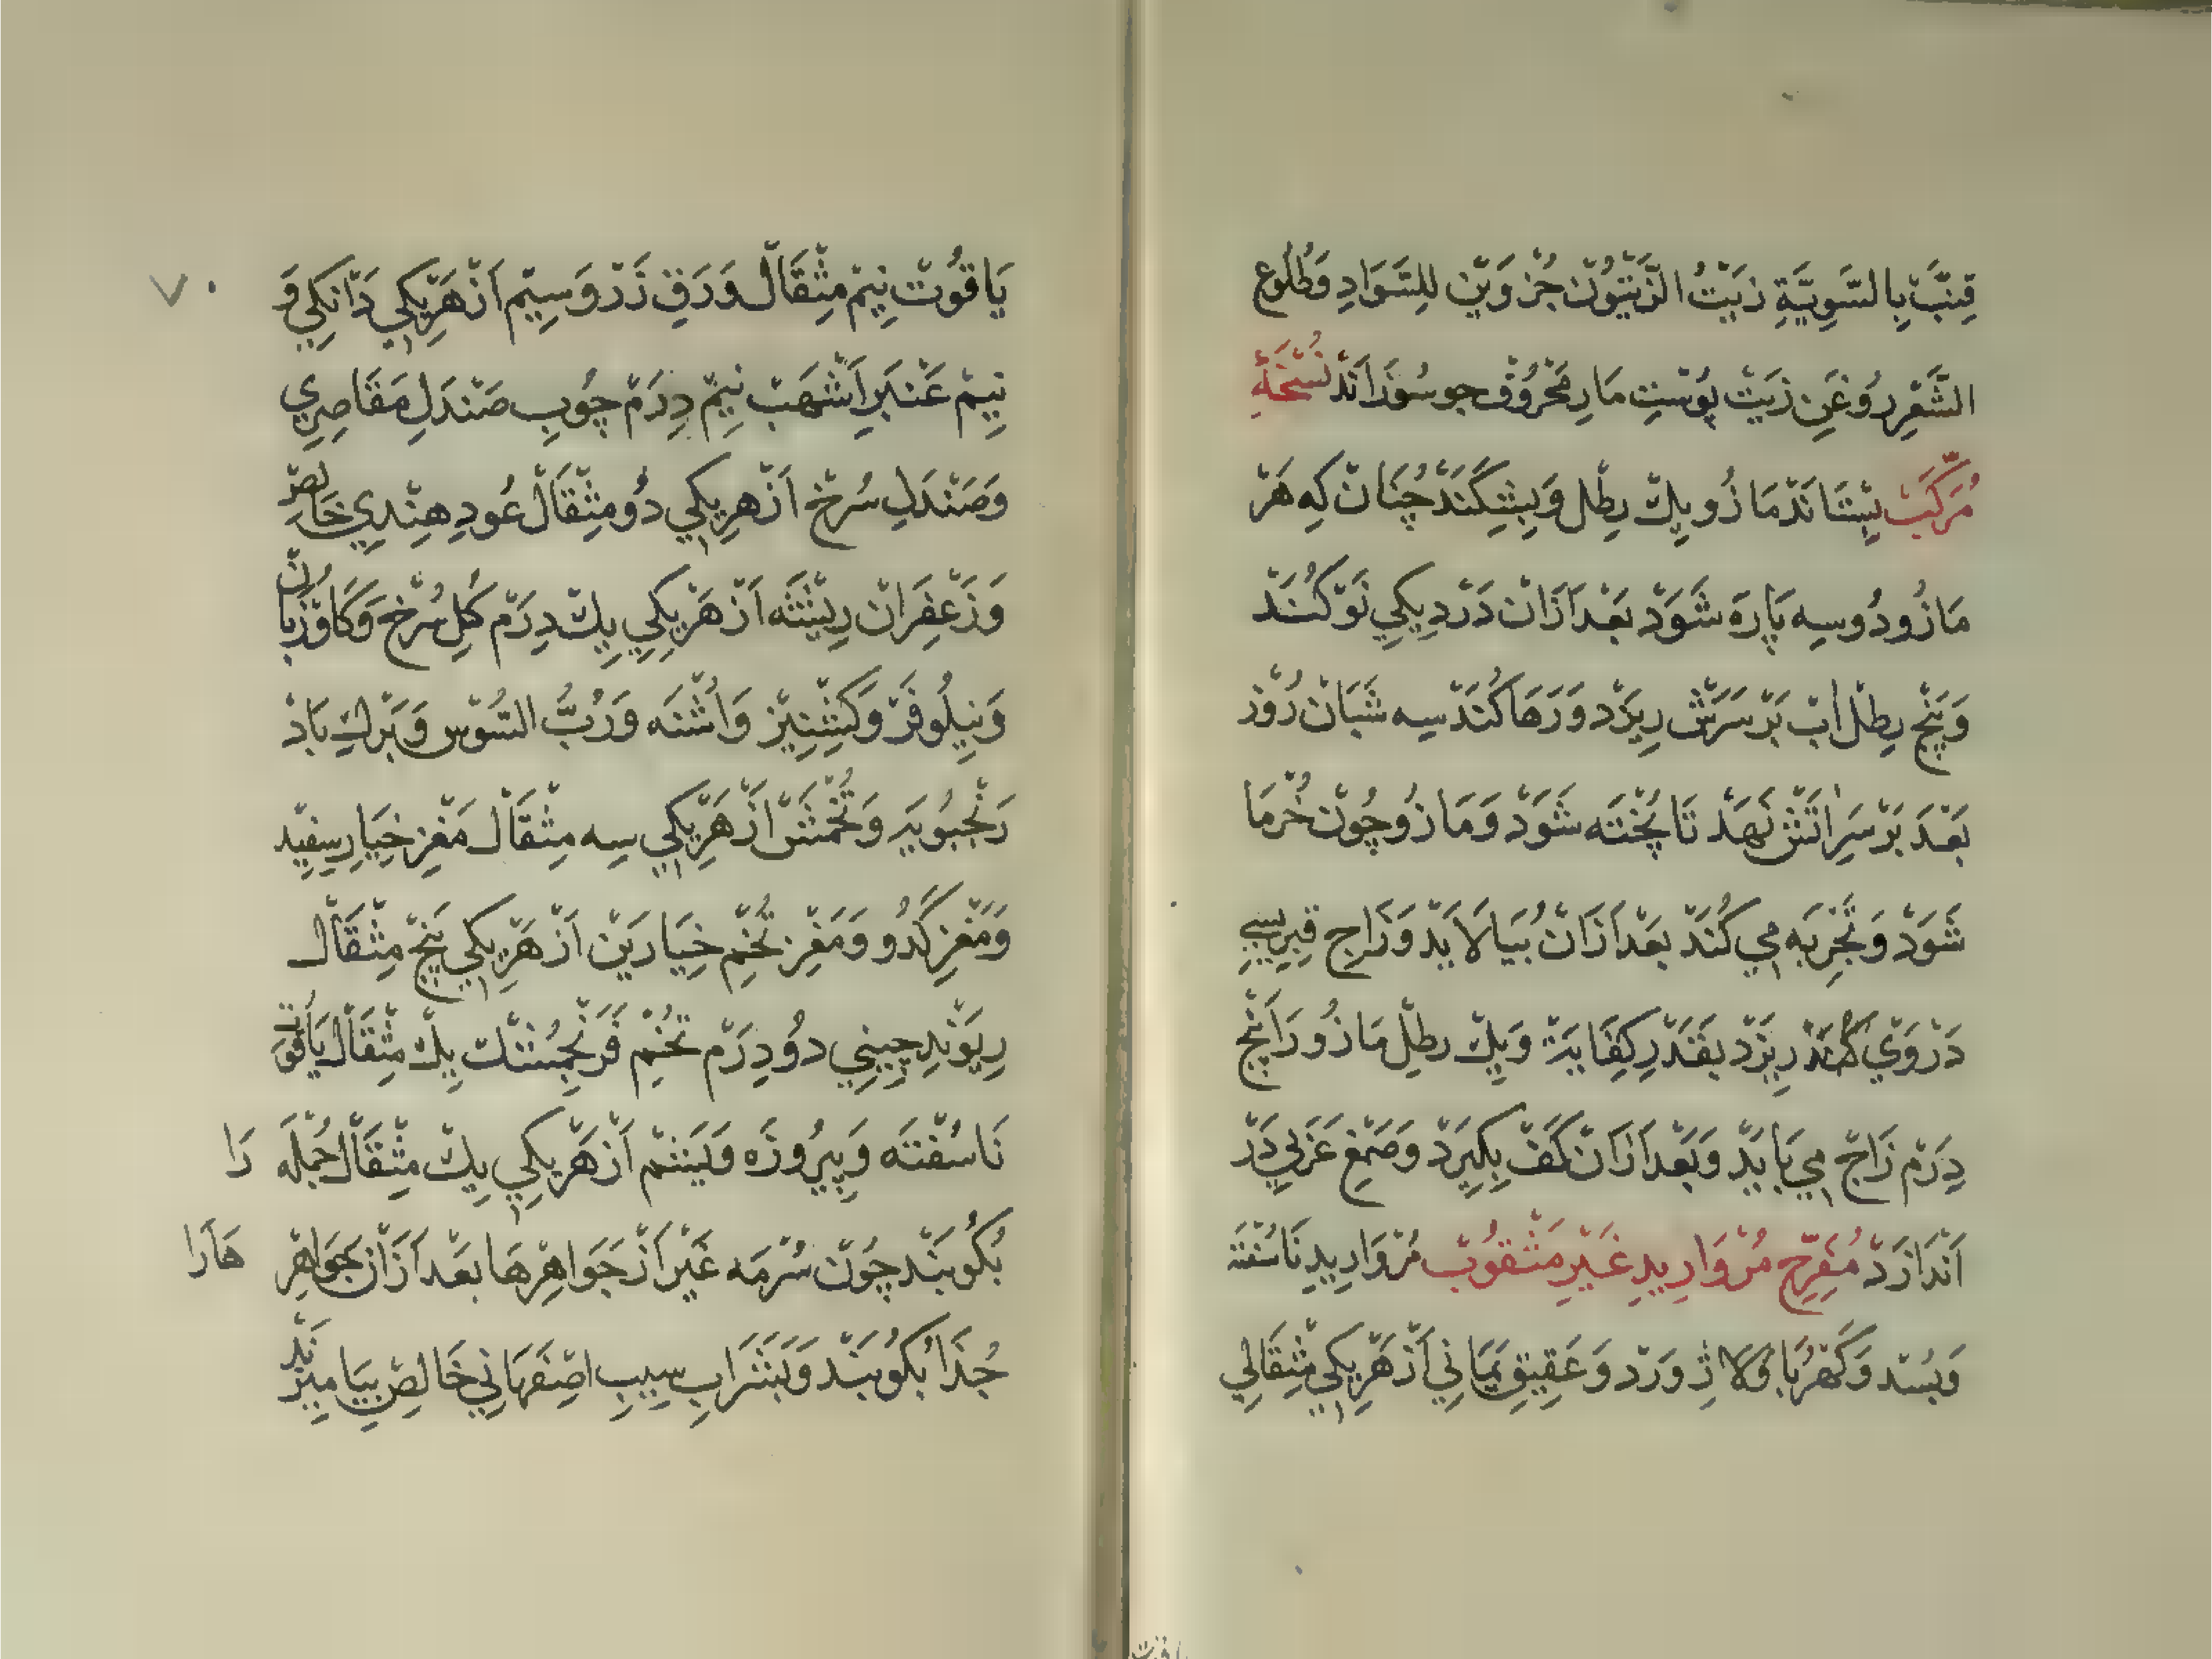 قِنَّبْ بِالسَّوِيَّةِ زَيْتُ الزَّيْتُوْنْ جُزْ وَيْن لِلسَّوَادِ وَطُلُوع
الشَّعْرِ رُوغَنِ زَيَتْ پُوْسْتِ مَارِ مَحْرُوْقْ جو سُوْزَانَدْ نُسْخَهْٔ
مُرَكَّبْ بِسْتَانَدْ مَازُو يِكْ رِطْل وَبِشِكَنَدْ چُنَانْ كِه هَرْ
مَازُو دُو سِه پَارَه شَوَدْ بَعْدَ اَزَانْ دَرْ دِيكِي نَوْ كُنَدْ
وَ پَنْج رِطْل ابْ بَرْ سَرَشْ رِيزَدْ وَ رَهَا كُنَدْ سِه شَبَانْ رُوْز
بَعْدَ بَرْ سَرِ اتَشْ نَهَدْ تَا پُخْتَه شَوَدْ وَ مَازُو چُونْ خُرمَا
شَوَدْ وَ تَجْرِبَه مِي كُنَدْ بَعْدَ اَزَانْ بُيَالاَيَدْ وَ زَاجِ قِبرِسِي
دَرْ وَيْ رِيزَدْ بقَدَرِ كِفَايَةْ وَ يِكْ رطْلِ مَازُو رَا پَنْج
دِرَمْ زَاجْ مِي بَايَدْ وَ بَعْدَ ازَانْ كَفْ بِكِيَرَدْ وَ صَمْغِ عَرَبِي دَرْ
اَنْدَازَدْ مُفَرِّحِ مُرْوَارِيدِ غَيْرِ مَثْقُوبْ مُرْوَارِيدِ نَاسُفْتَه
وَ بُسَّد وَ كَهْرُبَا وَ لاَژوَرْد وَ عَقِيقِ يَمَانِي اَزْ هَرْيِكِي مِثْقَالِي
يَاقُوتْ نِيمْ مِثْقَالْ وَرَقِ زَرْ وَ سِيْم اَزْ هَرْيِكِي دَانكِي وَ
نِيمْ عَنْبَرِ اَشْهَبْ نِيمْ دِرَمْ چُوبِ صَنْدَلِ مَقَاصِرِي
وَ صَنْدَلِ سُرْخ اَزْ هريِكِي دُو مِثْقَالْ عُودِ هِنْدِي خَالِصْ
وَ زَعْفِرَانْ رِيْشَه اَزْ هَرْيِكِي يِكْ دِرَمْ كُلِ سُرْخ وَ كَاوْ زُبَانْ
وَ نِيلُوفَرْ وَ كَشِنِيْز وَ اُشْنَه وَ رُبُّ السُّوْس وَ بَرْكِ بَادْ
رَنْجبُويَه وَ تُخْمَشْ اَزْ هَرْيِكِي سِه مِثْقَالْ مَغْزِ خِيَارِ سِفِيْد
وَ مَغْزِ كَدُو وَ مَغْزِ تُخْمِ خِيَارَيْن اَزْ هَرْيِكِي پَنْج مِثْقَالْ
رِيوَنْدِ چِينِي دُو دِرَمْ تُخْمِ فَرَنْجمُشْكْ يِكْ مِثْقَالْ يَاقُوتْ
نَاسُفْتَه وَ پِيرُوزَه وَ يَشْم اَزْ هَرْيِكِي يِكْ مِثْقَالْ جُمْلَه رَا
بُكُوبَنْد چُونْ سُرْمَه غَيْر اَزْ جَوَاهِرْهَا بَعْد اَزَانْ جَوَاهِرْ هَارَا
جُذَا بُكُوبَنْد وَ بَشَرَابِ سِيبِ اصْفَهَانِي خَالِصْ بِيَامِيزَنْد
٧٠